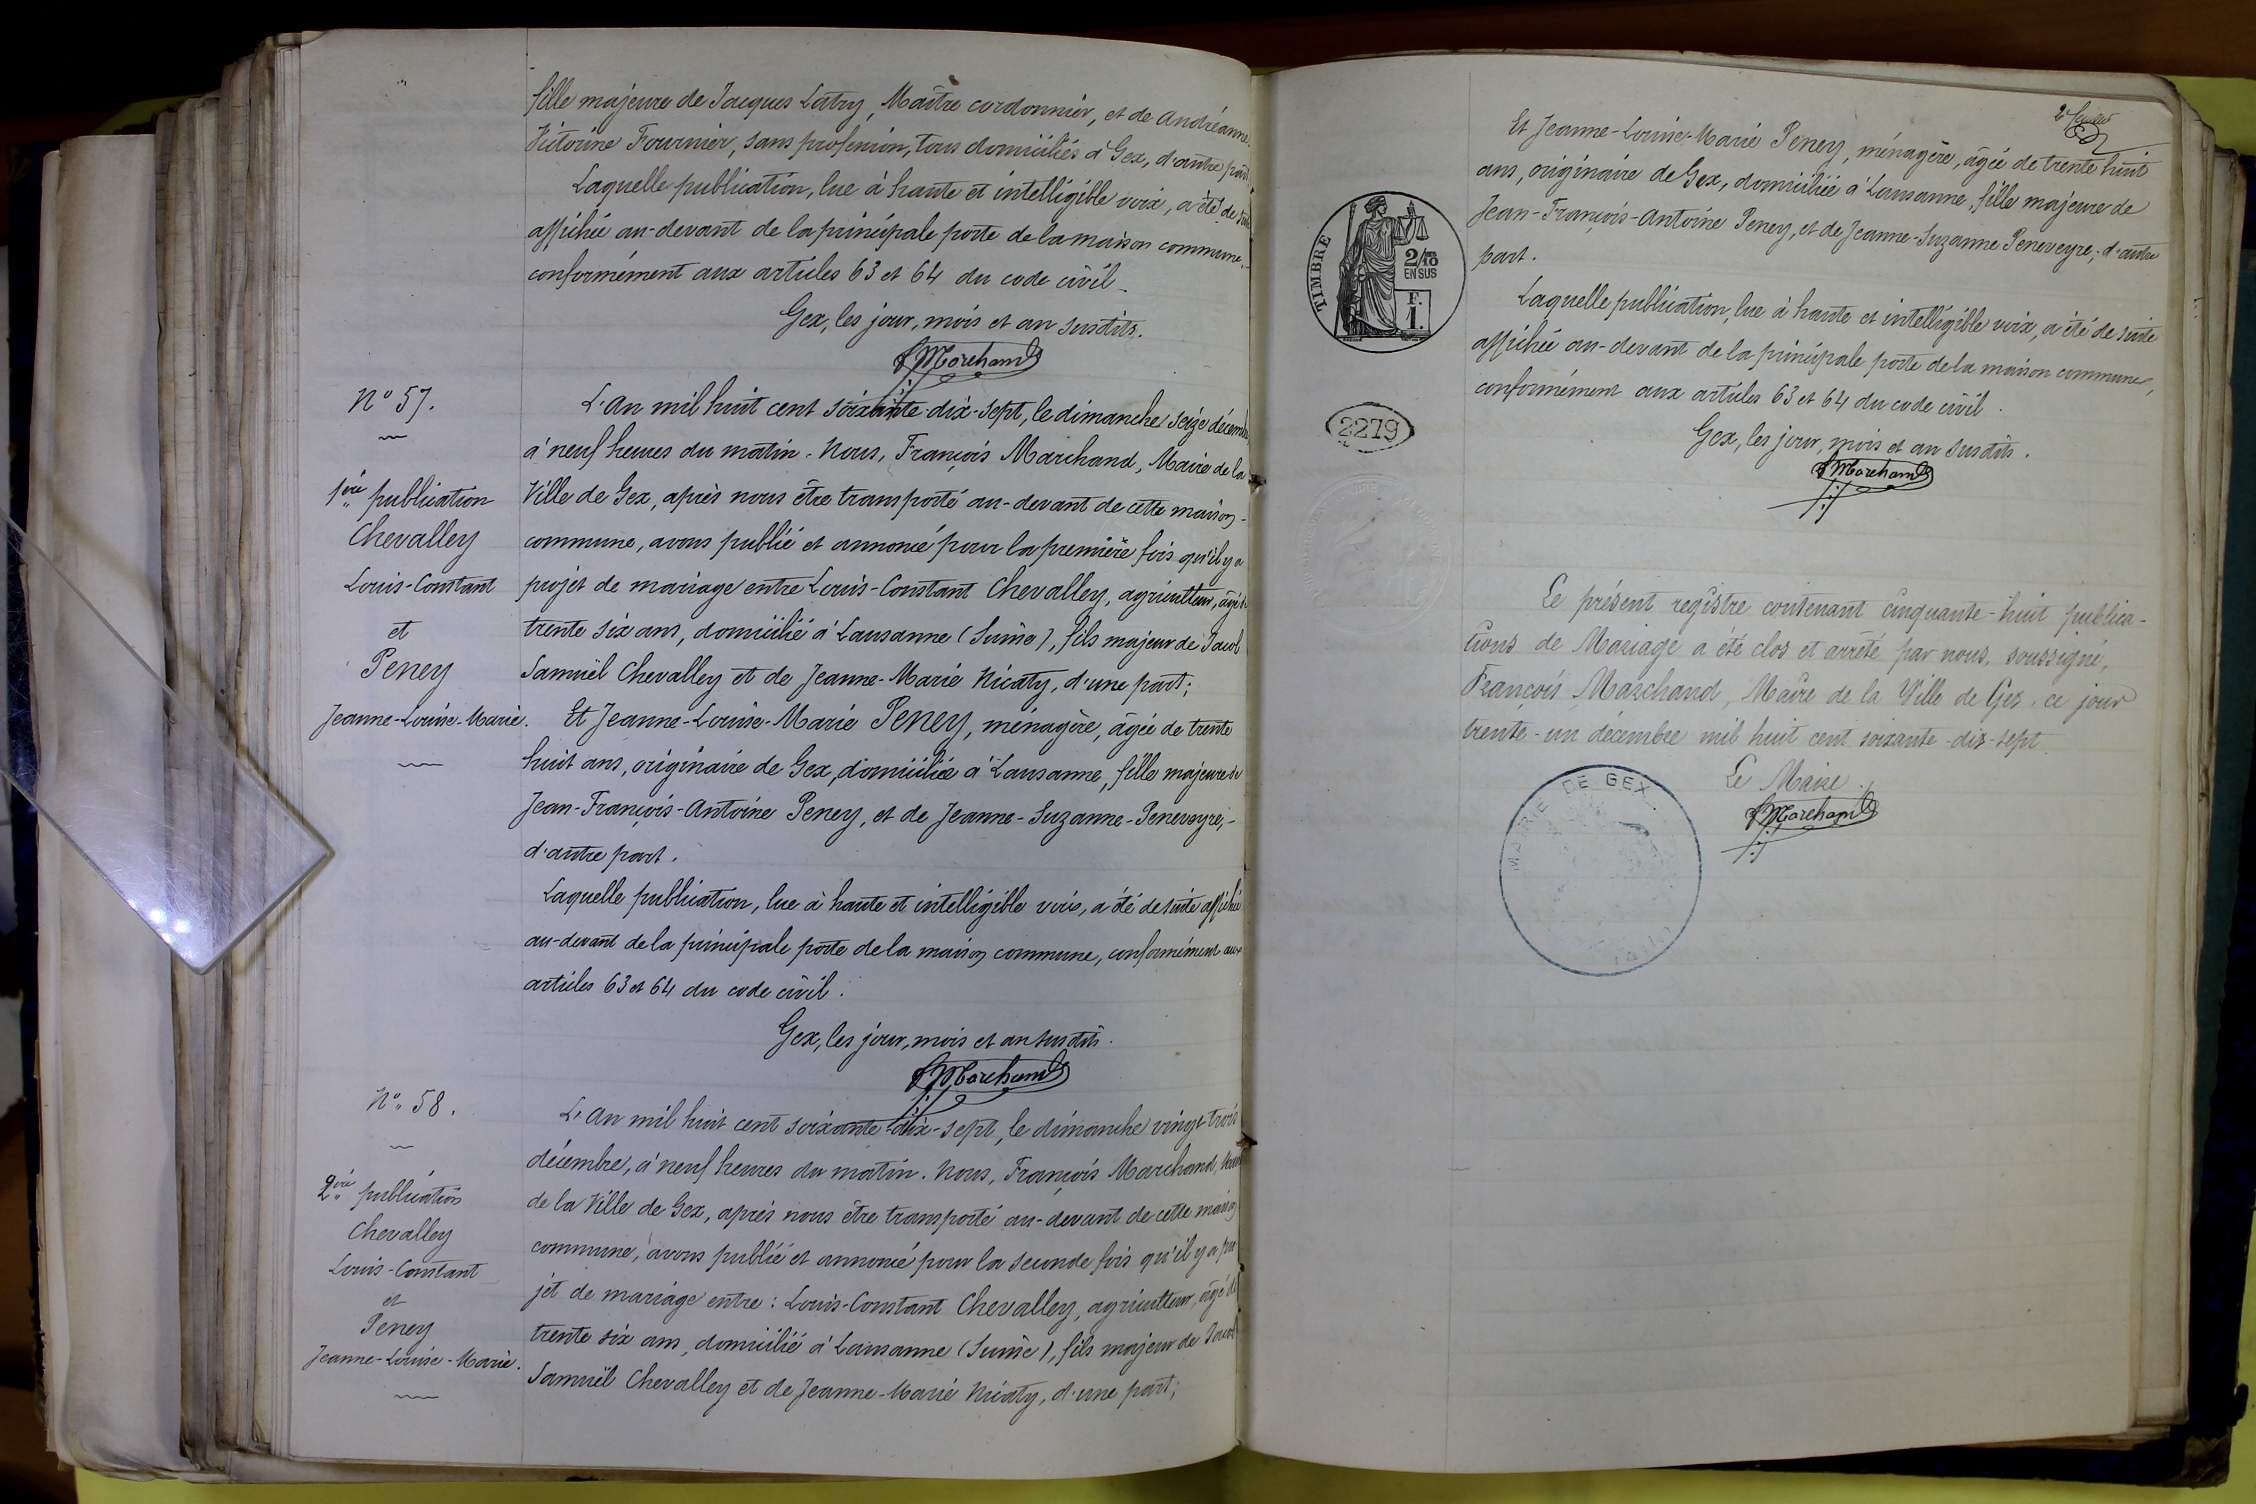 fille majeure de Jacques Latry, Maître cordonnier, et de Andréanne-
Victorine Fournier, sans profession, tous domiciliés à Gex, d'autre part.
Laquelle publication, lue à haute et intelligible voix, a été de suite
affichée au-devant de la principale porte de la maison commune.-
conformément aux articles 63 et 64 du code civil_
Gex, les jour, mois et an susdits.
Marchand
N° 57.
1ère publication
Chevalley
Louis-Constant
et
Peney
Jeanne-Louise-Marie.
L'An mil huit cent soixante-dix-sept, le dimanche seize décembre
à neuf heures du matin. Nous, François Marchand, Maire de la
Ville de Gex, après nous être transporté au-devant de cette maison-
commune, avons publié et annoncé pour la première fois qu'il y a
projet de mariage entre Louis-Constant Chevalley, agriculteur, âgé de
trente six ans, domicilié à Lausanne (Suisse), fils majeur de Jacob
Samuël Chevalley et de Jeanne-Marie Nicaty, d'une part;
Et Jeanne-Louise-Marie Peney, ménagère, âgée de trente
huit ans, originaire de Gex, domiciliée à Lausanne, fille majeure de
Jean-François-Antoine Peney, et de Jeanne-Suzanne-Peneveyre,-
d'autre part.
Laquelle publication, lue à haute et intelligible voix, a été de suite affichée
au-devant de la principale porte de la maison commune, conformément aux
articles 63 et 64 du code civil.
Gex, les jour, mois et an susdits.
Marchand
N° 58.
2ère publication
Chevalley
Louis-Constant
et
Peney
Jeanne-Louise-Marie.
L'An mil huit cent soixante-dix-sept, le dimanche vingt trois
décembre, à neuf heures du matin. Nous, François Marchand, Maire
de la Ville de Gex, après nous être transporté au-devant de cette maison
commune, avons publié et annoncé pour la seconde fois qu'il y a pro
jet de mariage entre : Louis-Constant Chevalley, agriculteur, âgé de
trente six ans, domicilié à Lausanne (Suisse), fils majeur de Jacob
Samuël Chevalley et de Jeanne-Marie Nicaty, d'une part;
Et Jeanne-Louise-Marie Peney, ménagère, âgée de trente huit
ans, originaire de Gex, domiciliée à Lausanne, fille majeure de
Jean-François-Antoine Peney, et de Jeanne-Suzanne Peneveyre; d'autre
part.
Laquelle publication, lue à haute et intelligible voix, a été de suite
affichée au-devant de la principale porte de la maison commune,
conformément aux articles 63 et 64 du code civil.
Gex, les jour, mois et an susdits.
Marchand
TIMBRE
2/10
EN SUS
F.
1.
2279
Le présent registre contenant cinquante-huit publica-
tions de Mariage a été clos et arrêté par nous, soussigné,
François Marchand, Maire de la Ville de Gex, ce jour
trente-un décembre mil huit cent soixante-dix-sept
Le Maire.
Marchand
MAIRIE DE GEX.
(AIN)